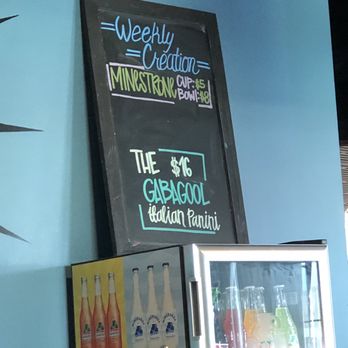 Weekly
=Creation=
MINESTRONE CUP:$5
BOWL:$8
THE $16
GABAGOOL
italian Panini